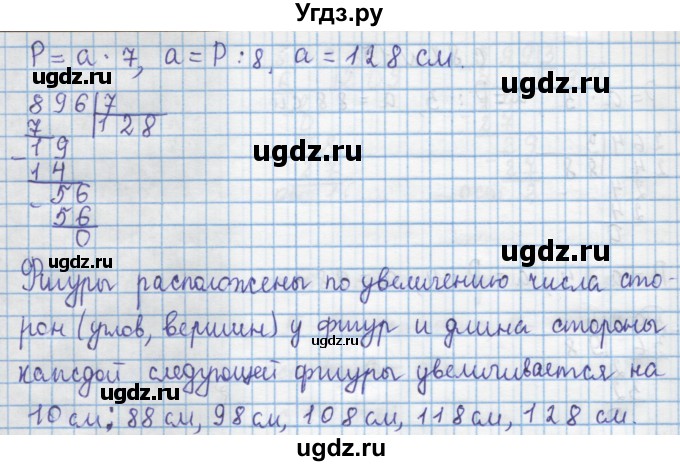 Угдз.ру
P = a · 7, a = P : 8, a = 128 см.
ugdz.ru
ugdz.ru
896 7
7 128
ugdz.ru
- 19
14
- 56
56
0
ugdz.ru
ugdz.ru
Фигуры расположены по увеличению числа сто-
рон (углов, вершин) у фигур и длина стороны
ugdz.ru
каждой следующей фигуры увеличивается на
10 см: 88 см, 98 см, 108 см, 118 см, 128 см.
ugdz.ru
ugdz.ru
ugdz.ru